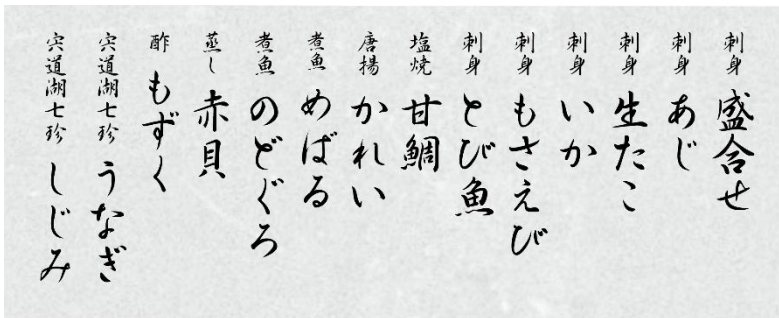 刺身 盛合せ
刺身 あじ
刺身 生たこ
刺身 いか
刺身 もさえび
刺身 とび魚
塩焼 甘鯛
唐揚 かれい
煮魚 めばる
煮魚 のどぐろ
蒸し 赤貝
酢 もずく
宍道湖七珍 うなぎ
宍道湖七珍 しじみ